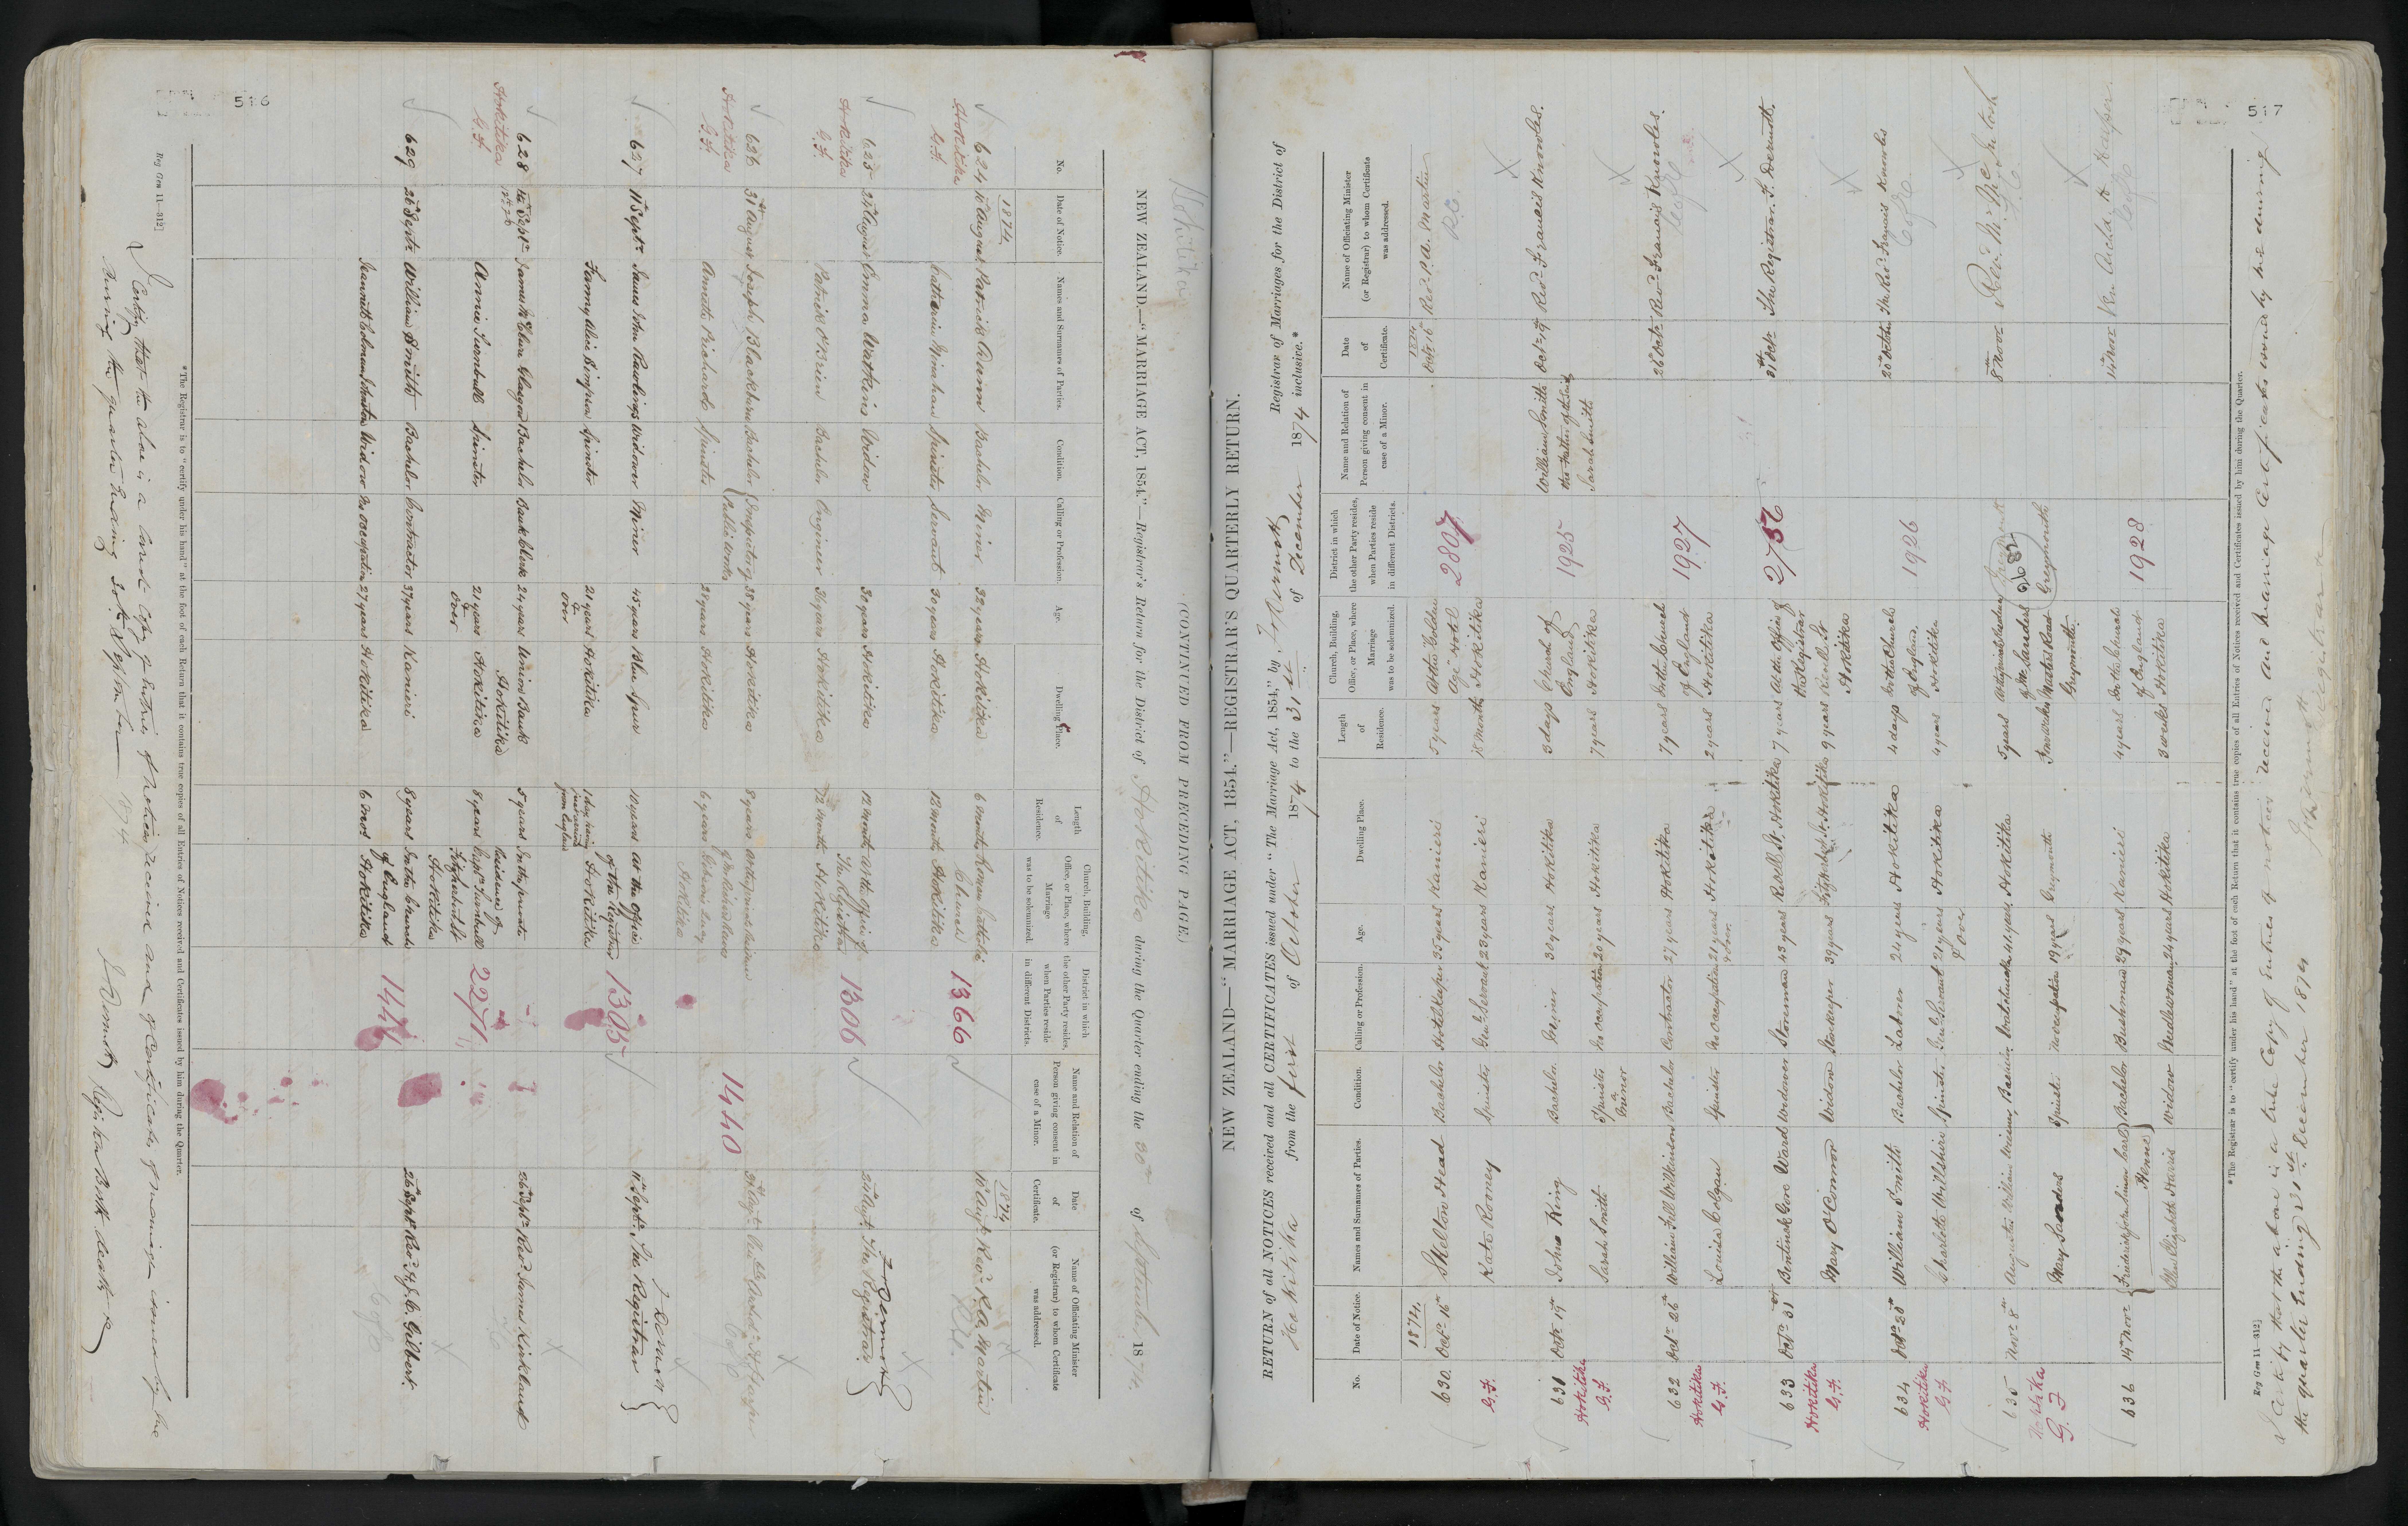 516
(CONTINUED FROM PRECEDING PAGE)
Hokitika
NEW ZEALAND.—"MARRIAGE ACT, 1854."—Registrar's Return for the District of Hokitika during the Quarter ending the 30th of September 1874.
No.
Date of Notice.
Names and Surnames of Parties.
Condition.
Calling or Profession.
Age.
Dwelling Place.
Length of Residence.
Church, Building, Office, or Place, where Marriage was to be solemnized.
District in which the other Party resides, when Parties reside in different Districts.
Name and Relation of Person giving consent in case of a Minor.
Date of Certificate.
Name of Officiating Minister (or Registrar) to whom Certificate was addressed.
1874 1874
624 August Patrick Bachelor Miner 32 years Hokitika 6 months Roman Catholic Church 1366 Augt Revd Martin
Hokitika G.F. Catherine Spinster Servant 30 years Hokitika 12 months Hokitika R.C.
625 August Emma Watkins Widow 30 years Hokitika 12 months At the Office of The Registrar 1306 Augt The Registrar
Hokitika G.F. Patrick O'Brien Bachelor Engineer 36 years Hokitika 12 months Hokitika
626 31st August Joseph Blackburn Bachelor 38 years Hokitika 8 years 1440
Hokitika G.F. Annette Prichard Spinster Hokitika 6 years Hokitika
627 11th Septr James John Rawlings Widower Miner 45 years Blue Spur 10 years At the Office of the Registrar 1305 11th Septr The Registrar
Fanny Alice Simpson Spinster 21 years & over Hokitika Hokitika
628 Septr James Glasgow Bachelor Bank Clerk 24 years Union Bank Hokitika 5 years In the private Residence of Captn Turnbull Hokitika 2271 Septr Revd James Kirkland
Hokitika G.F. Annie Turnbull Spinster 21 years & over Hokitika 8 years
629 26th Septr William Smith Bachelor Contractor 37 years Kanieri 8 years In the Church of England 1441 26th Septr Revd Gilbert
Jeanette Widow No Occupation 27 years Hokitika 6 mos Hokitika
*The Registrar is to "certify under his hand" at the foot of each Return that it contains true copies of all Entries of Notices received and Certificates issued by him during the Quarter.
Reg Gen 11—312]
I Certify that the above is a correct Copy of Entries of Notices received and of Certificates of marriage issued by me
during the quarter ending 30th September 1874
517
NEW ZEALAND—"MARRIAGE ACT, 1854."—REGISTRAR'S QUARTERLY RETURN.
RETURN of all NOTICES received and all CERTIFICATES issued under "The Marriage Act, 1854," by Registrar of Marriages for the District of
Hokitika from the first of October 1874 to the 31st of December 1874 inclusive.*
No.
Date of Notice.
Names and Surnames of Parties.
Condition.
Calling or Profession.
Age.
Dwelling Place.
Length of Residence.
Church, Building, Office, or Place, where Marriage was to be solemnized.
District in which the other Party resides, when Parties reside in different Districts.
Name and Relation of Person giving consent in case of a Minor.
Date of Certificate.
Name of Officiating Minister (or Registrar) to whom Certificate was addressed.
1874. 1874
630. Octr 16th Skelton Head Bachelor Hotelkeeper 35 years Kanieri 5 years At the "Golden Age" Hotel 2807 Octr 16th Revd Martin
G.F. Kate Rooney Spinster Genl Servant 23 years Kanieri 18 months Hokitika R.C.
631 Octr 19th John King Bachelor Miner 30 years Hokitika 3 days Church of England 1925 William Smith the Father of the said Sarah Smith Octr 19 Revd Francis Knowles.
Hokitika G.F. Sarah Smith Spinster a Minor No occupation 20 years Hokitika 7 years Hokitika
632 Octr 26th William Hill Wilkinson Bachelor Contractor 27 years Hokitika 7 years In the Church of England 1927 26 Octr Revd Francis Knowles.
Hokitika G.F. Louisa Colgan Spinster No Occupation 21 years & over Hokitika 2 years Hokitika CofE
633 Octr 31st Bentinck Gore Ward Widower Storeman 43 years Revell St. Hokitika 7 years At the Office of the Registrar 31st Octr The Registrar.
Hokitika G.F. Mary O'Connor Widow Storekeeper 39 years Hokitika 9 years Revell St Hokitika
634 Octr 20th William Smith Bachelor Laborer 24 years Hokitika 4 days In the Church of England 1926 20th Octr The Revd Francis Knowles
Hokitika G.F. Charlotte Wilshire Spinster Genl Servant 21 years & over Hokitika 4 years Hokitika CofE
635 Novr 8th Augustus William Bachelor Hokitika 5 years 2682 8 Novr Revd
Hokitika G.F. Mary Sanders Spinster No occupation 19 years Greymouth Greymouth Greymouth
636 14th Novr Frederick John Simon Carl Henne Bachelor Bushman 29 years Kanieri 4 years In the Church of England 1928 14 Novr Harper
Ellen Elizabeth Harris Widow Needlewoman 24 years Hokitika 3 weeks Hokitika CofE
*The Registrar is to "certify under his hand" at the foot of each Return that it contains true copies of all Entries of Notices received and Certificates issued by him during the Quarter.
Reg Gen 11—312]
I Certify that the above is a true Copy of Entries of notices received and marriage certificates issued by me during
the quarter ending 31st December 1874 Registrar